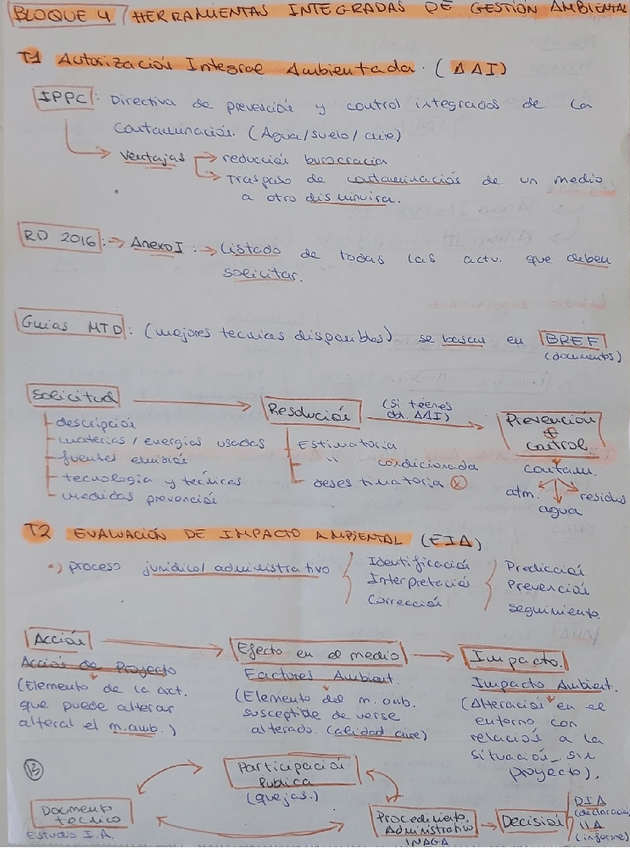 BLOQUE 4 / HERRAMIENTAS INTEGRADAS DE GESTIÓN AMBIENTAL
T1 Autorización Integrae Ambientada. (AAI)
IPPC: Directiva de prevención y control integrados de la
contaminación. (Agua/suelo/aire)
Ventajas → reducción burocracia
→ Traspaso de contaminación de un medio
a otro disminuira.
RD 2016: → Anexo I: → Listado de todas las actv. que deben
solicitar.
Guias MTD: (mejores tecnicas disponibles) se basan en BREF
(documentos)
Solicitud → Resolución (Si tienes
AAI) → Prevención
& Control
- descripción
- materias / energias usadas
- fuentes emisión
- tecnologia y técnicas
- medidas prevención
Estimatoria
" condicionada
desestimatoria ⓧ
contam.
atm. agua residuos
T2 EVALUACIÓN DE IMPACTO AMBIENTAL (EIA)
proceso juridico/administrativo
Identificación
Interpretación
Corrección
Predicción
Prevención
Seguimiento
Acción → Efecto en el medio → Impacto.
Acción de Proyecto
(Elemento de la act.
que puede alterar
alteral el m.amb.)
Factores Ambient.
(Elemento del m. amb.
susceptible de verse
alterado. (calidad aire)
Impacto Ambient.
(Alteración en el
entorno con
relación a la
situación sin
proyecto).
13
Participación
Pública
(quejas.)
Documento
técnico
Estudio I.A.
Procedimiento
Administrativo
INAGA
→ Decisión
DIA
(declaración
IIA
(informe)